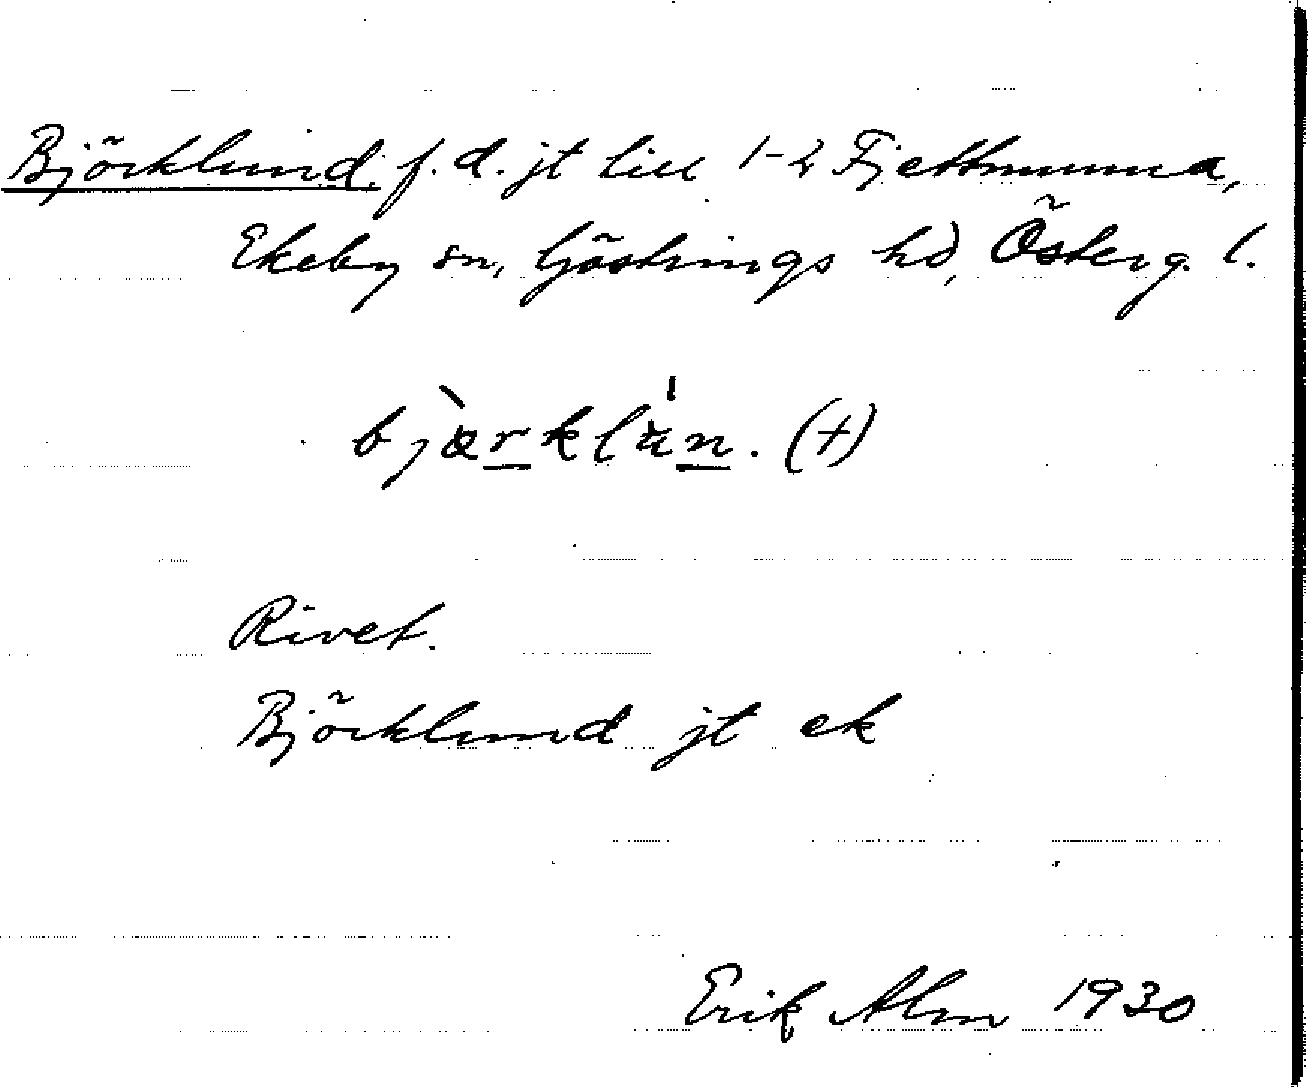 Björklund, f. d. jt till 1-2 Fjettmunna,
Ekeby sn, Göstrings hd, Österg. l.
bjærklun. (+)
Rivet.
Björklund jt ek
Erik Alm 1930